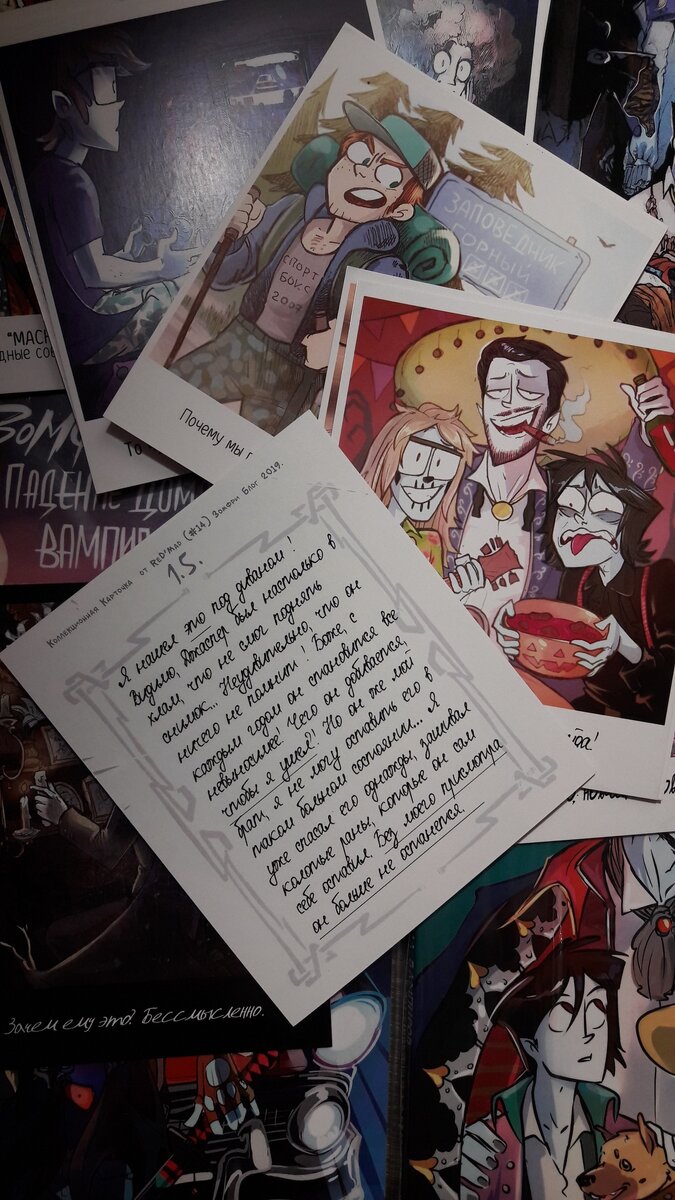 ЗАПОВЕДНИК
ГОРНЫЙ
СПОРТ
БОКС
2007
"МАСК
дные соб
То
Почему мы г
ЗОМУ
ПАДЕНИЕ ДОМ
ВАМПИ
Коллекционная Карточка от ReD'Mad (#14) Зомфри Блог 2019.
1.5.
Я нашел это под диваном!
Видимо, Джаспер был настолько в
хлам, что не смог поднять
снимок... Неудивительно, что он
ничего не помнит! Боже, с
каждым годом он становится все
невыносимее! Чего он добивается,
чтобы я ушел?! Но он же мой
брат, я не могу оставить его в
таком больном состоянии... Я
уже спасал его однажды, зашивал
колотые раны, которые он сам
себе оставил. Без моего присмотра
он больше не останется.
Зачем ему это? Бессмысленно.